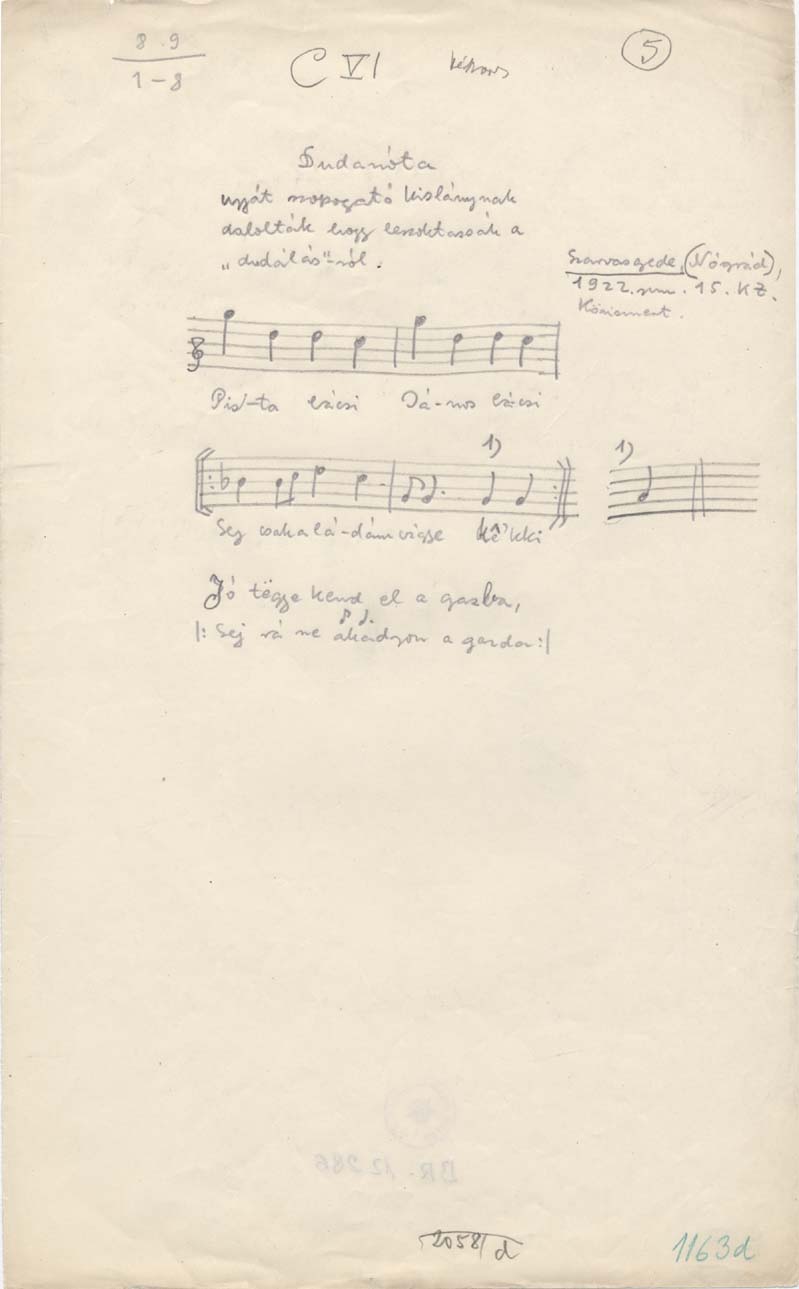 8 . 9
1 – 8
C VI
5
Dudanóta
ujját szopogató kislánynak
dalolták hogy leszoktassák a
„dudálás"-ról.
Szarvasgede, (Nógrád),
1922. 15. KZ.
Pis-ta bácsi Já-nos bácsi
1) 1)
Sej csak a lá-dám vigye kê kki
Jó tëgye kend el a gazba,
|: Sej rá ne akadgyon a gazda :|
BR. 12986
2058/d
1163d